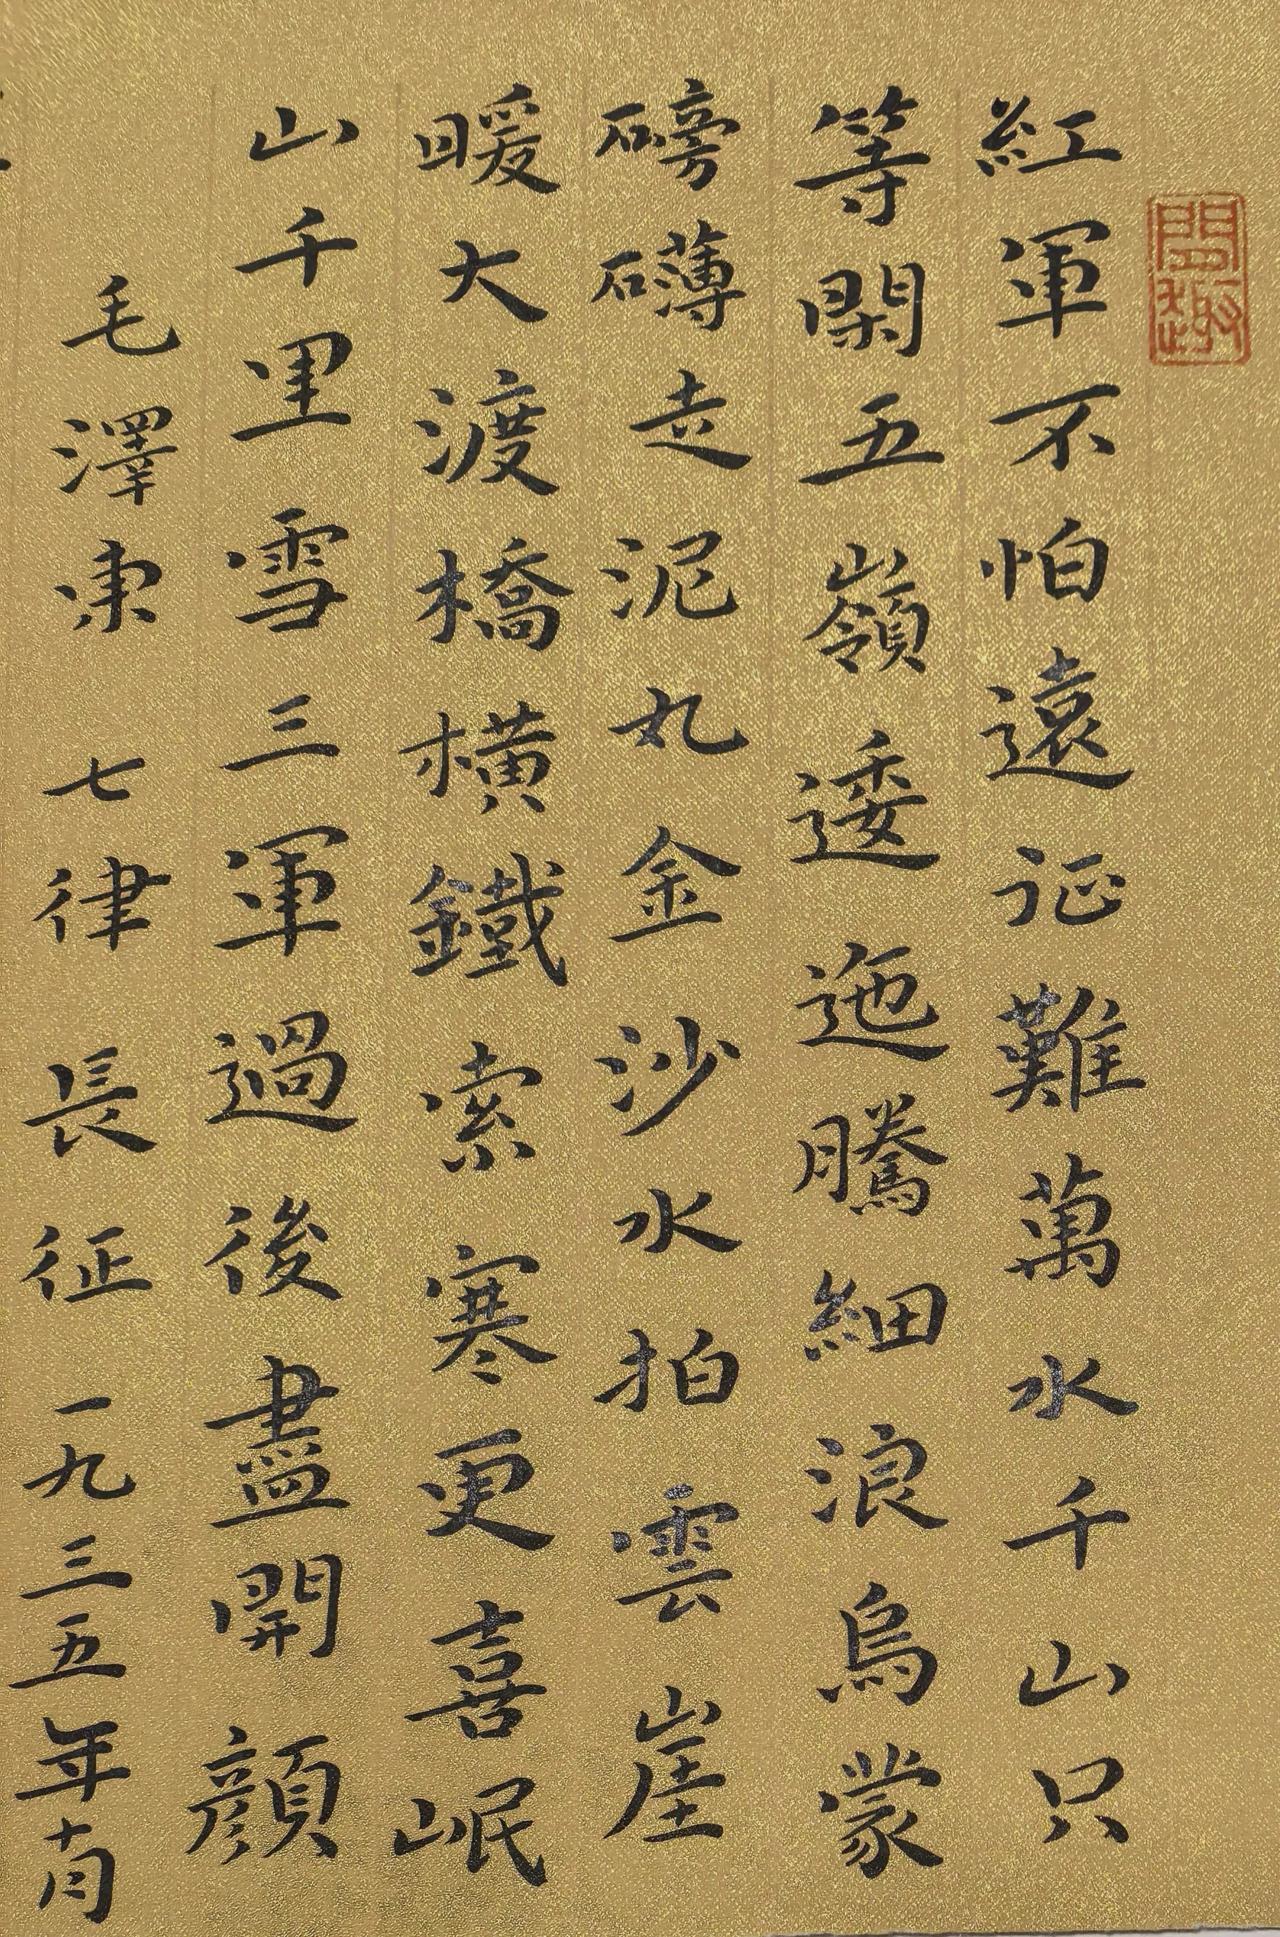 紅軍不怕遠征難萬水千山只
等閑五嶺逶迤騰細浪烏蒙
磅礴走泥丸金沙水拍雲崖
暖大渡橋橫鐵索寒更喜岷
山千里雪三軍過後盡開顏
毛澤東 七律 長征 一九三五年十月